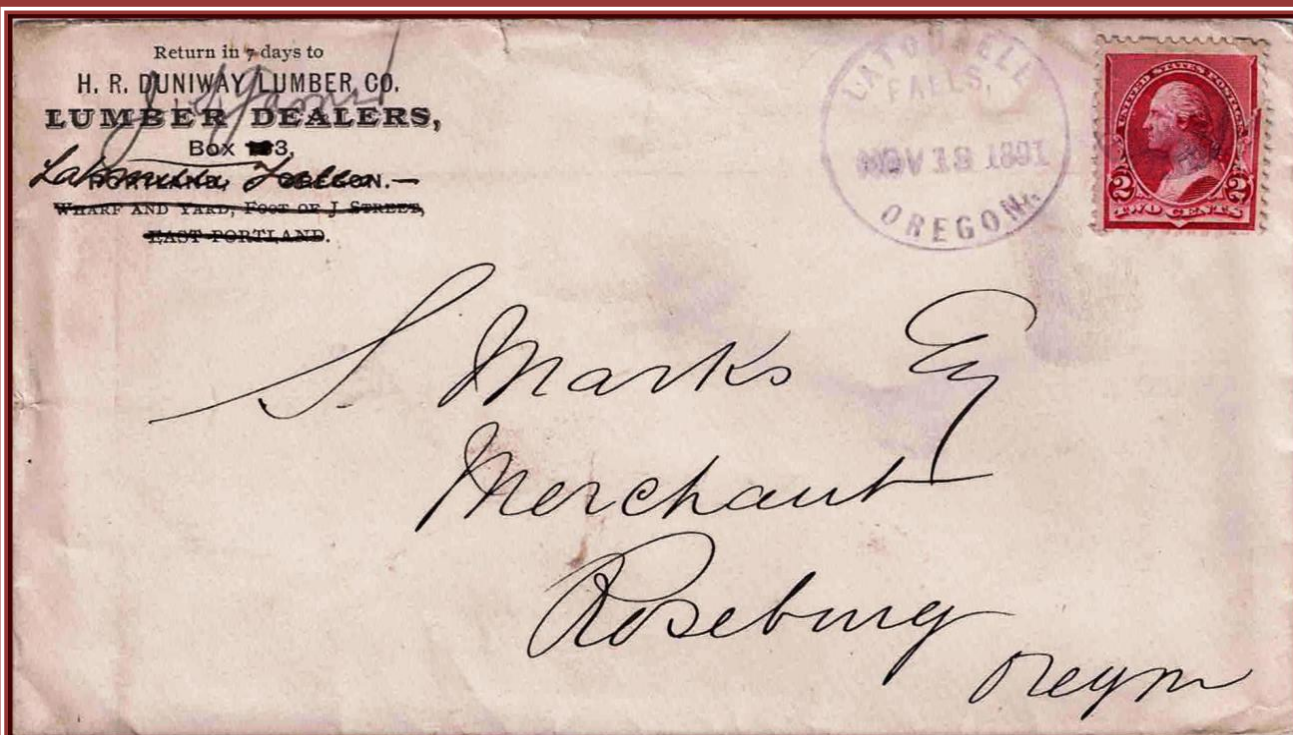 Return in 7 days to
H. R. DUNIWAY LUMBER CO.
LUMBER DEALERS,
Box 3,
Latourell Falls
PORTLAND, OREGON.
WHARF AND YARD, FOOT OF J STREET,
EAST PORTLAND.
LATOURELL
FALLS,
OREGON.
UNITED STATES POSTAGE
2 2
TWO CENTS
S. Marks Esq
Merchant
Roseburg
Oregon